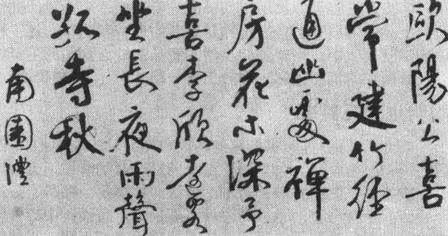 歐陽公喜
常建竹徑
通幽處禪
房花木深予
喜李頎遠客
坐長夜雨聲
孤寺秋
南園灃